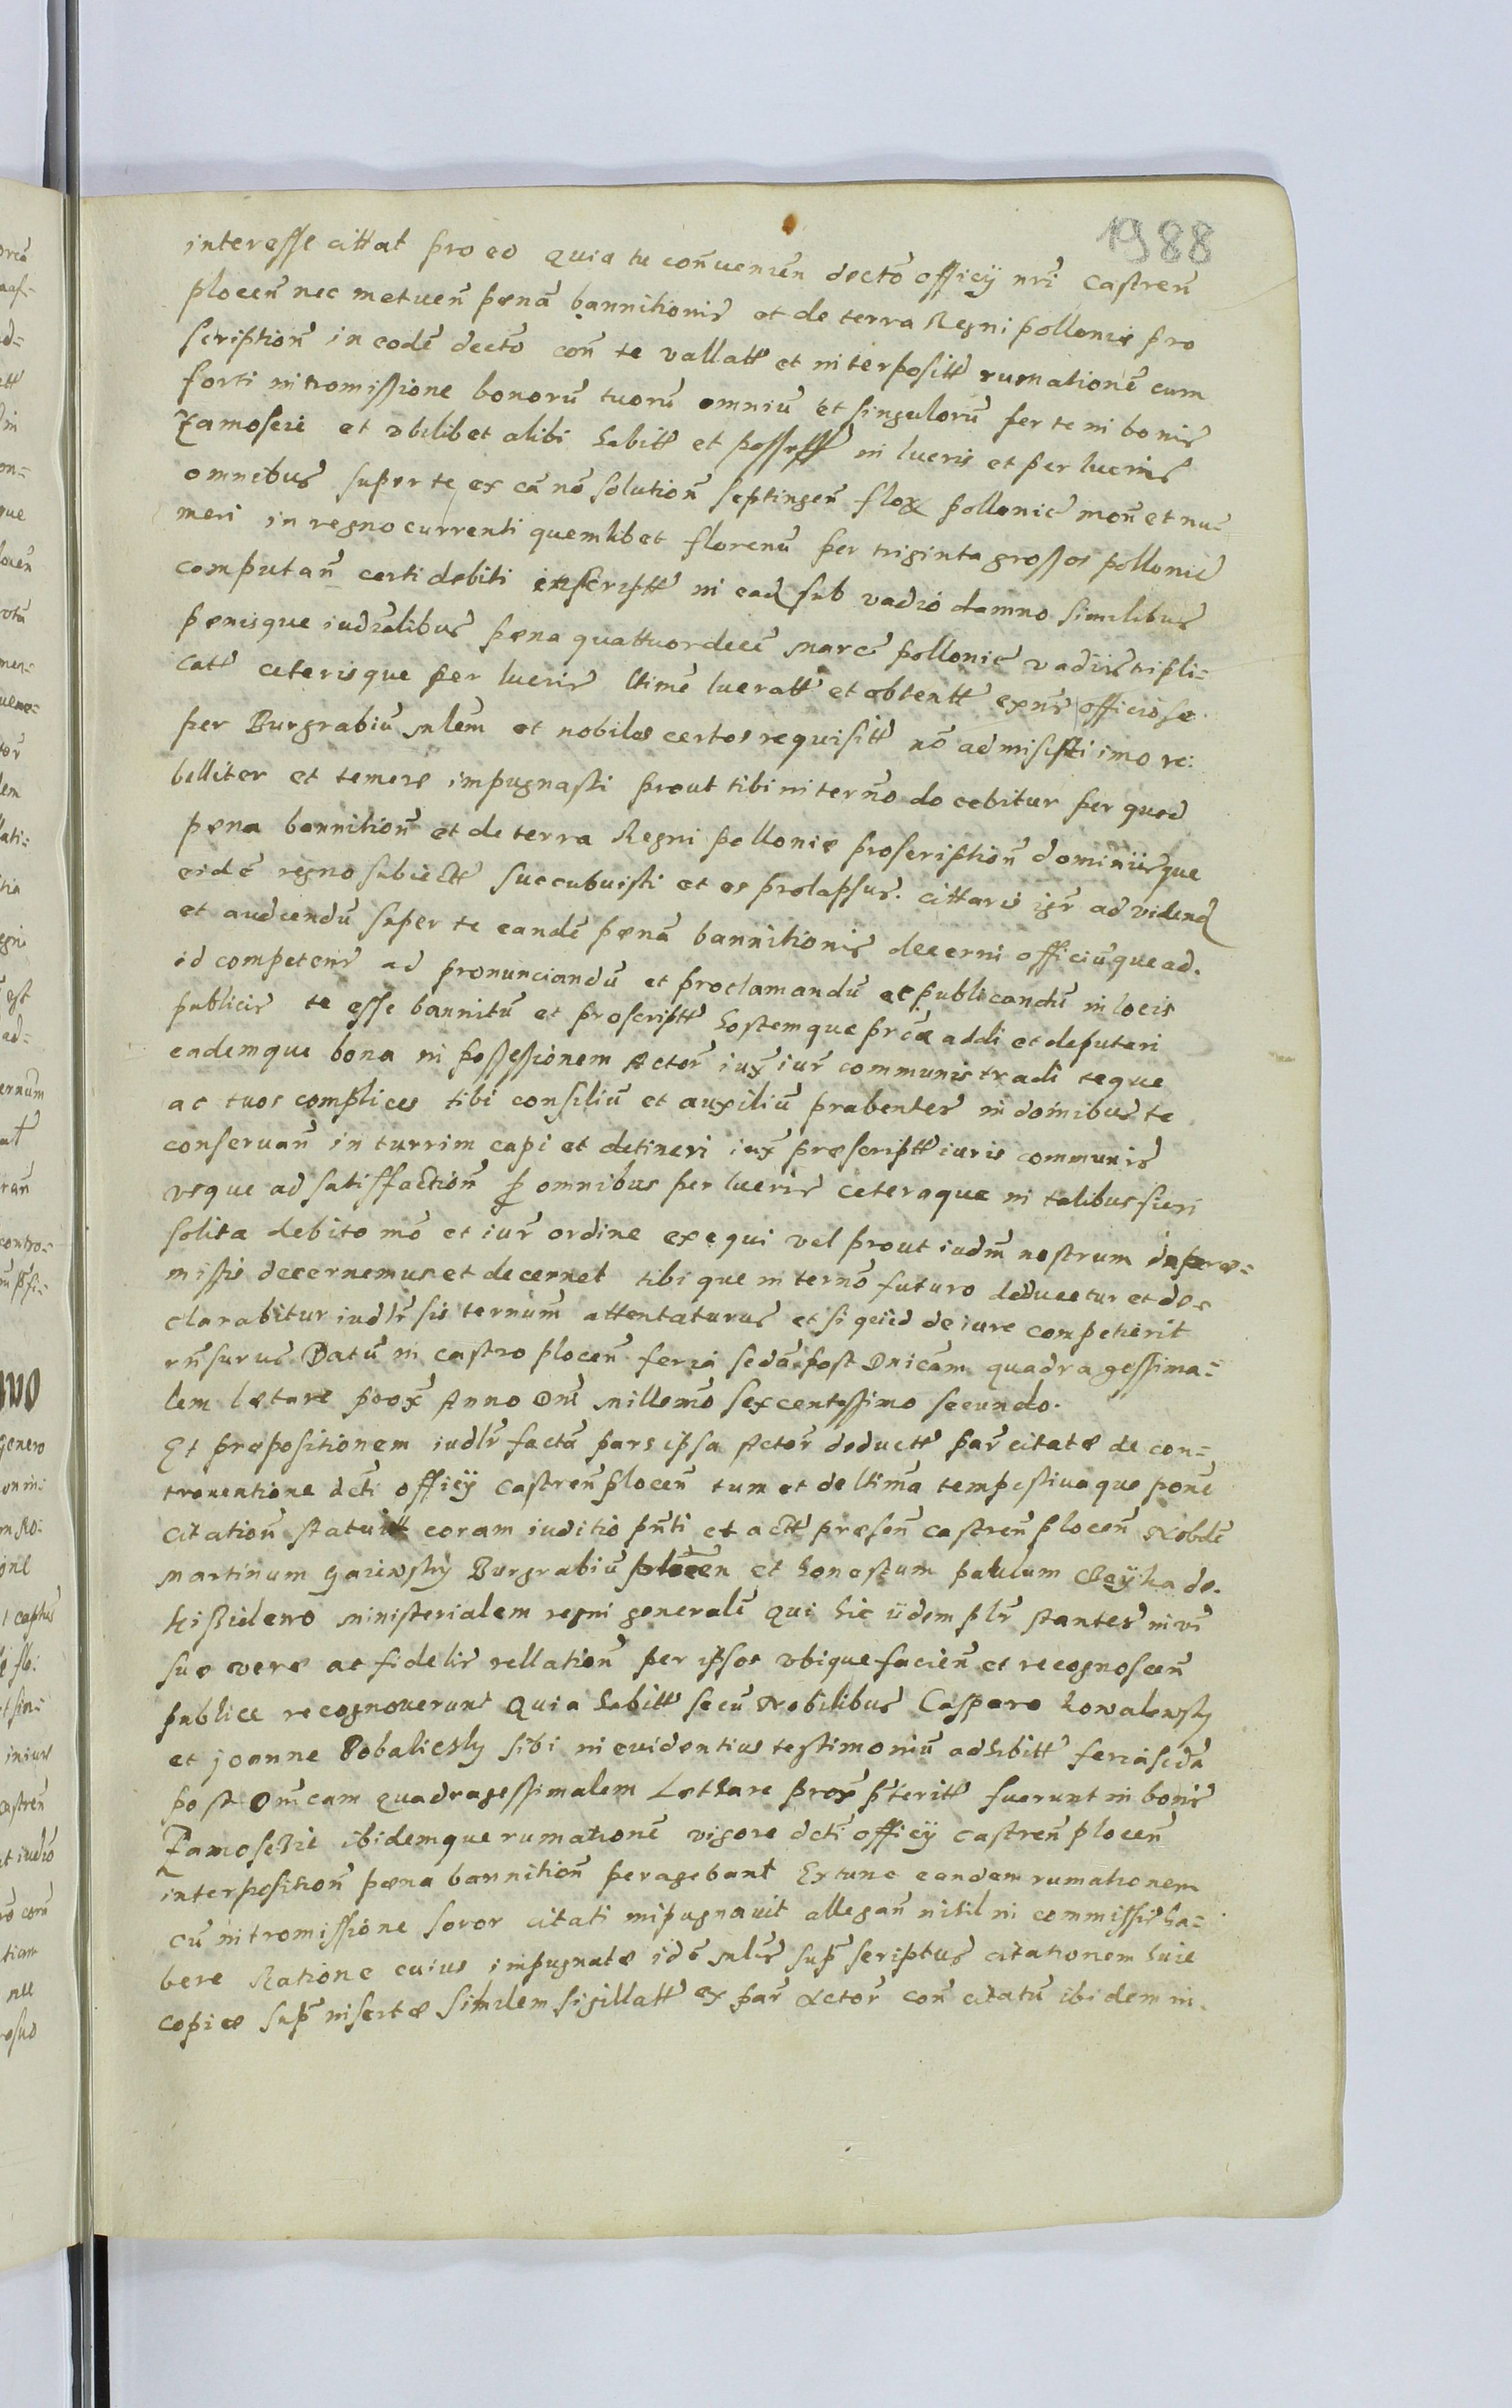 1988
interesse cittat pro eo quia tu conveniun dectō officij nr̄i Castren̄
plocen̄ nec metuen̄ pœnā bannitionis et de terra Regni polloniæ pro
scription̄ in eodē dectō con̄ te vallatt et interpositt rumationē cum
forti intromissione bonorū tuorū omniū et singulorū per te in bonis
Zamoscie et vbilibet alibi habitt et possess in lucris et per lucris
omnibus super te ex cā nō solution̄ septingen̄ flor pollonic mon̄ et nu=
meri in regno currenti quemlibet florenū per triginta grossos pollonic
computan̄ certi debiti inscriptt in ead sub vadio damno similibus
pœnisque iudialibus pœna quattuordecē marc pollonic vadiis tripli=
catt ceterisque per lucris ltimē lucratt et obtentt exn̄s officiose
per Burgrabiū mlem et nobiles certos requisitt nō admisisti imo re:
belliter et temere impugnasti prout tibi in termō docebitur per quod
pœna bannition̄ et de terra Regni polloniæ proscription̄ dominiisque
eidē regno subiectt succubuisti et es prolapsus. cittaris igr ad videnđ
et audiendū super te eandē pœnā bannitionis decerni officiūque ad.
id competens ad pronunciandū et proclamandū et publicandū in locis
publicis te esse bannitū et proscriptt hostemque pr̄iæ addi et deputari
eademque bona in possessionem Actor̄ iux iur̄ communis tradi teque
ac tuos complices tibi consiliū et auxiliū præbentes in domibus te
conservan̄ in turrim capi et detineri iux præscriptt iuris communis
vsque ad satisfaction̄ ꝓ omnibus per lucris ceteraque in talibus fieri
solita debito mō et iur̄ ordine exequi vel prout iudm̄ nostrum in præ=
missis decernemus et decernet tibique in termō futuro deducetur et de
clarabitur iudlr̄ sis ternum attentaturus et si quid de iure competierit
rn̄surus Datū in castro plocen̄ feria secdā post Dnicam quadragessima=
lem lætare prox Anno Dnī millemō sexcentessimo secundo.
Et propositionem iudlr̄ factā pars ipsa Actor̄ deductt par̄ citatæ de con=
traventione dcti officij castren̄ plocen̄ tum et de ltimā tempestivaque ponē
citation̄ statuit coram iuditio pn̄ti et actt præsen̄ castren̄ plocen̄ Nobdē
Martinum Garewsky Burgrabiū plocen et honestum paulum Cleyha de.
kiszielewo ministerialem regni generalē qui hic iidem plr̄ stantes in vi
suæ veræ ac fidelis rellation̄ per ipsos vbique facien̄ et recognoscen̄
publice recognoverunt Quia habitt secū Nobilibus Casparo kowalewsky
et joanne Bobaliczky sibi in evidentius testimoniū adhibitt feria secdā
post Dnicam quadragessimalem Lethare prox pr̄teritt fuerunt in bonis
Zamosczie ibidemque rumationē vigore dcti officij castren̄ plocen̄
interposition̄ pœna bannition̄ peragebant Extunc eandem rumationem
cū intromissione soror citati impugnavit allegan̄ nihil in commissis ha=
bere Ratione cuius impugnatæ idē mlis supr̄ scriptus citationem huic
copiæ supr̄ insertæ similem sigillatt ex par̄ Actor̄ con̄ citatū ibidem in.